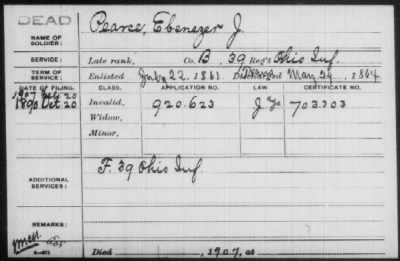 DEAD
NAME OF SOLDIER: Pearce, Ebenezer J.
SERVICE: Late rank, Co. B, 39 Reg't Ohio Inf.
TERM OF SERVICE: Enlisted July 22, 1861 Discharged May 24, 1864
DATE OF FILING. CLASS. APPLICATION NO. LAW. CERTIFICATE NO.
1907
1890 Oct. 20 Invalid, 920.623 703.303
Widow,
Minor,
ADDITIONAL SERVICES: F. 39 Ohio Inf.
REMARKS:
Died , 1907, at